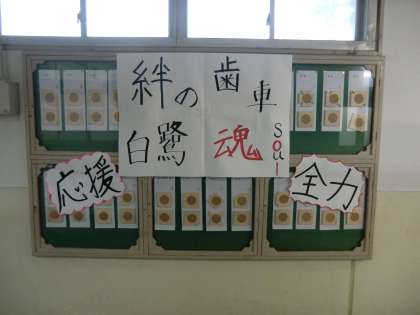 絆の歯車
白鷺魂 Soul
応援
全力